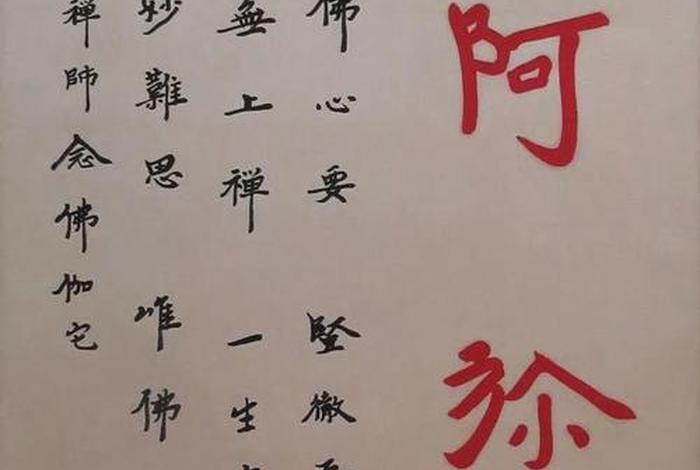 阿弥
佛心要 竪徹
無上禅 一生
妙難思 唯佛
禪師念佛伽它